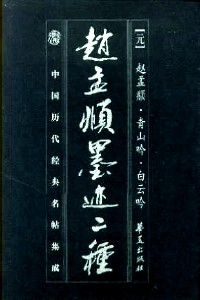 [元] 赵孟頫·青山吟·白云吟
趙孟頫墨迹二種
中国历代经典名帖集成
华夏出版社